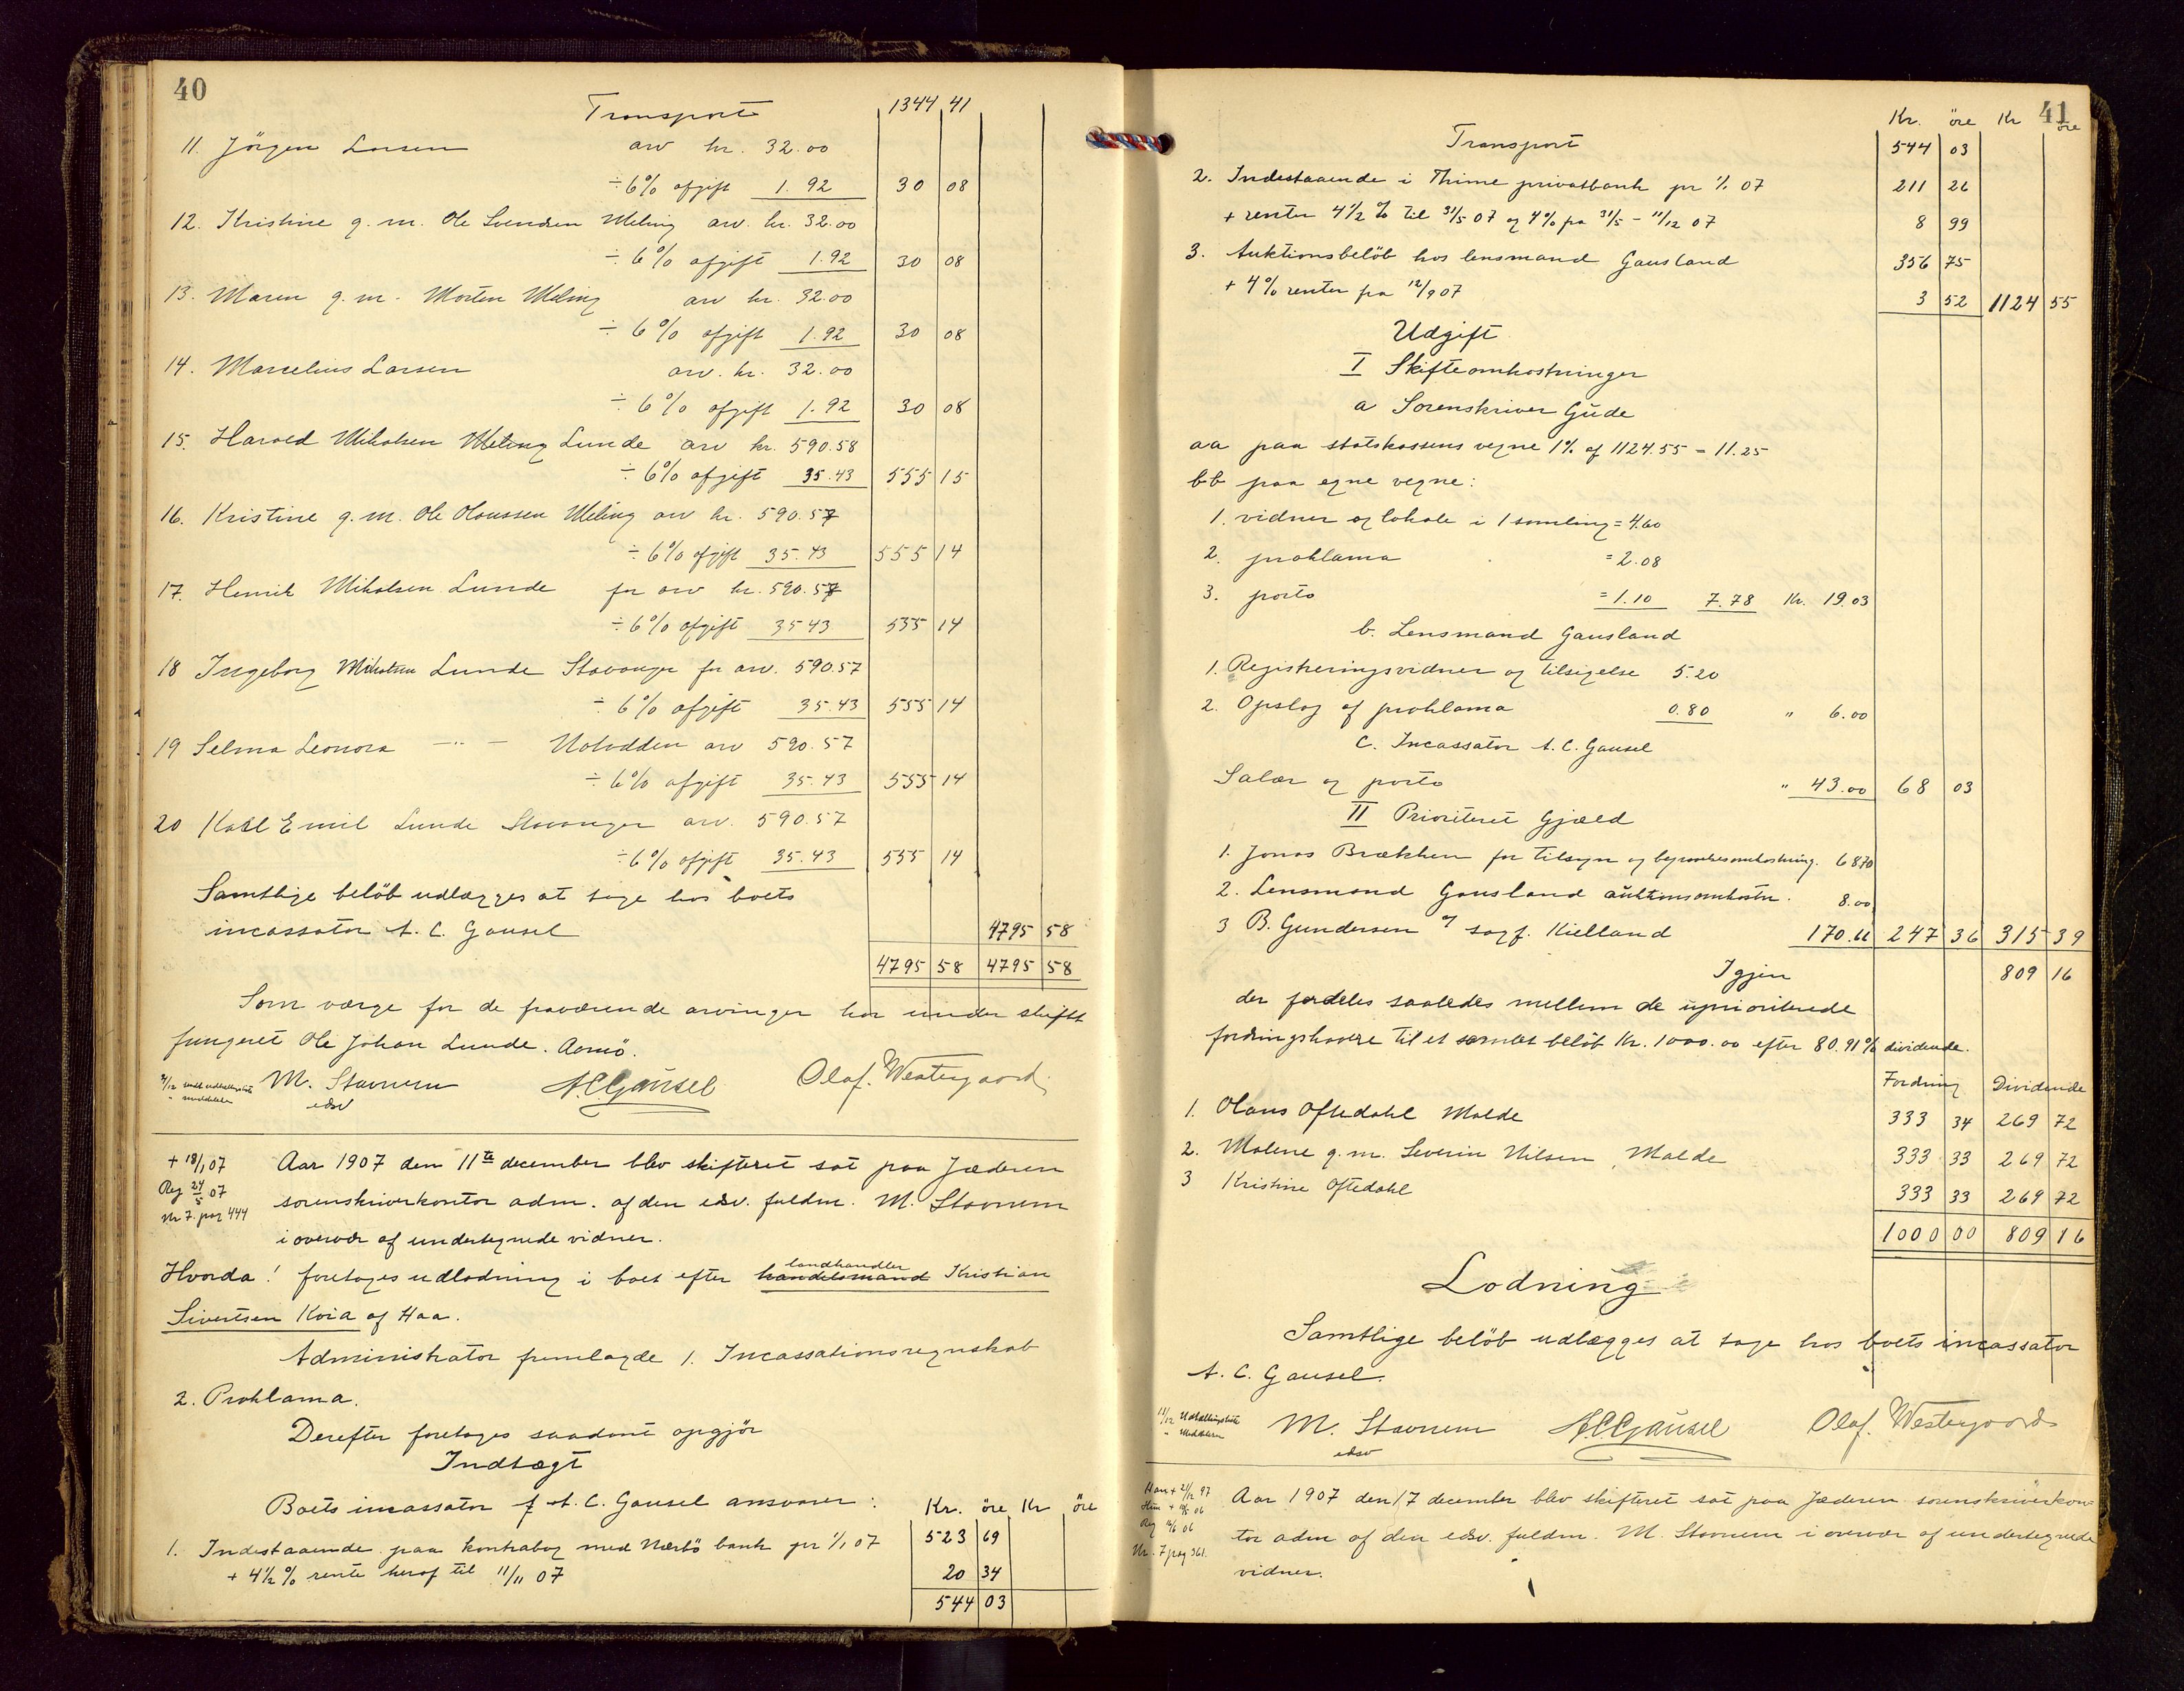 40
Transport 1344 41
11. Jörgen Larsen arv kr. 32.00
÷ 6% afgift 1.92 30 08
12. Kristine g. m. Ole Svendsen Meling arv. kr. 32.00
÷ 6% afgift 1.92 30 08
13. Maren g. m. Morten Meling arv kr. 32.00
÷ 6% afgift 1.92 30 08
14. Marcelius Larsen arv. kr. 32.00
÷ 6% afgift 1.92 30 08
15. Harald Mikalsen Meling Lunde arv kr. 590.58
÷ 6% afgift 35.43 555 15
16. Kristine g. m. Ole Olaussen Meling arv kr. 590.57
÷ 6% afgift 35.43 555 14
17. Henrik Mikalsen Lunde for arv kr. 590.57
÷ 6% afgift 35 43 555 14
18 Ingeborg Mikalsen Lunde Stavanger for arv. 590.57
÷ 6% afgift 35.43 555 14
19 Selma Leonora — " — Notodden arv 590.57
÷ 6% afgift 35.43 555 14
20 Karl Emil Lunde Stavanger arv. 590.57
÷ 6% afgift 35.43 555 14
Samtlige belöb udlægges at tage hos boets
incassator A. C. Gausel 4795 58
4795 58 4795 58
Som værge for de fraværende arvinger har under skiftet
fungeret Ole Johan Lunde. Aamö.
M. Stavnem A.C. Gausel Olaf. Westergaard
edsv
+ 18/1 07 Aar 1907 den 11te december blev skifteret sat paa Jæderen
Reg 24/5 07 sorenskriverkontor adm. af den edsv. fuldm. M. Stavnem
Nr 7. pag 444 i overvær af undertegnede vidner.
landhandler
Hvorda! foretoges udlodning i boet efter handelsmand Kristian
Sivertsen Kvia af Haa.
Administrator fremlagde 1. Incassationsregnskab
2. Proklama.
Derefter foretoges saadant opgjör
Indtægt
Boets incassator A. C. Gausel ansvarer: Kr. öre Kr öre
1. Indestaaende paa kontrabog med Nærbö bank pr 1/1 07 523 69
+ 4 1/2 % rente heraf til 11/11 07 20 34
544 03
41
Kr. öre Kr öre
Transport 544 03
2. Indestaaende i Thime privatbank pr 1/1 07 211 26
+ renter 4 1/2 % til 31/5 07 og 4% fra 31/5 - 11/12 07 8 99
3. Auktionsbelöb hos lensmand Gausland 356 75
+ 4% renter fra 12/9 07 3 52 1124 55
Udgift
I Skifteomkostninger
a Sorenskriver Gude
aa paa statskassens vegne 1% af 1124.55 = 11.25
bb paa egne vegne:
1. vidner og lokale i 1 samling = 4.60
2. proklama = 2.08
3. porto = 1.10 7.78 Kr. 19.03
b. Lensmand Gausland
1. Registreringsvidner og tilsigelse 5.20
2. Opslag af proklama 0.80 " 6.00
C. Incassator A. C. Gausel
Salær og porto " 43.00 68 03
II Prioriteret Gjæld
1. Jonas Brækken for tilsyn og begravelsesomkostning. 68 70
2. Lensmand Gausland auktionsomkostn. 8.00
3 B. Gundersen v/ sagf. Kielland 170.66 247 36 315 39
Igjen 809 16
der fordeles saaledes mellem de uprioriterede
fordringshavere til et samlet belöb Kr. 1000.00 efter 80.91% dividende.
Fordring Dividende
1. Olaus Oftedahl Malde 333 34 269 72
2. Malene g. m. Severin Nilsen, Malde 333 33 269 72
3 Kristine Oftedahl 333 33 269 72
1000 00 809 16
Lodning
Samtlige belöb udlægges at tage hos boets incassator
A. C. Gausel.
M. Stavnem A.C. Gausel Olaf. Westergaard
edsv
Aar 1907 den 17 december blev skifteret sat paa Jæderen sorenskriverkon-
tor adm af den edsv. fuldm. M. Stavnem i overvær af undertegnede
Nr. 7 pag 361.
vidner.